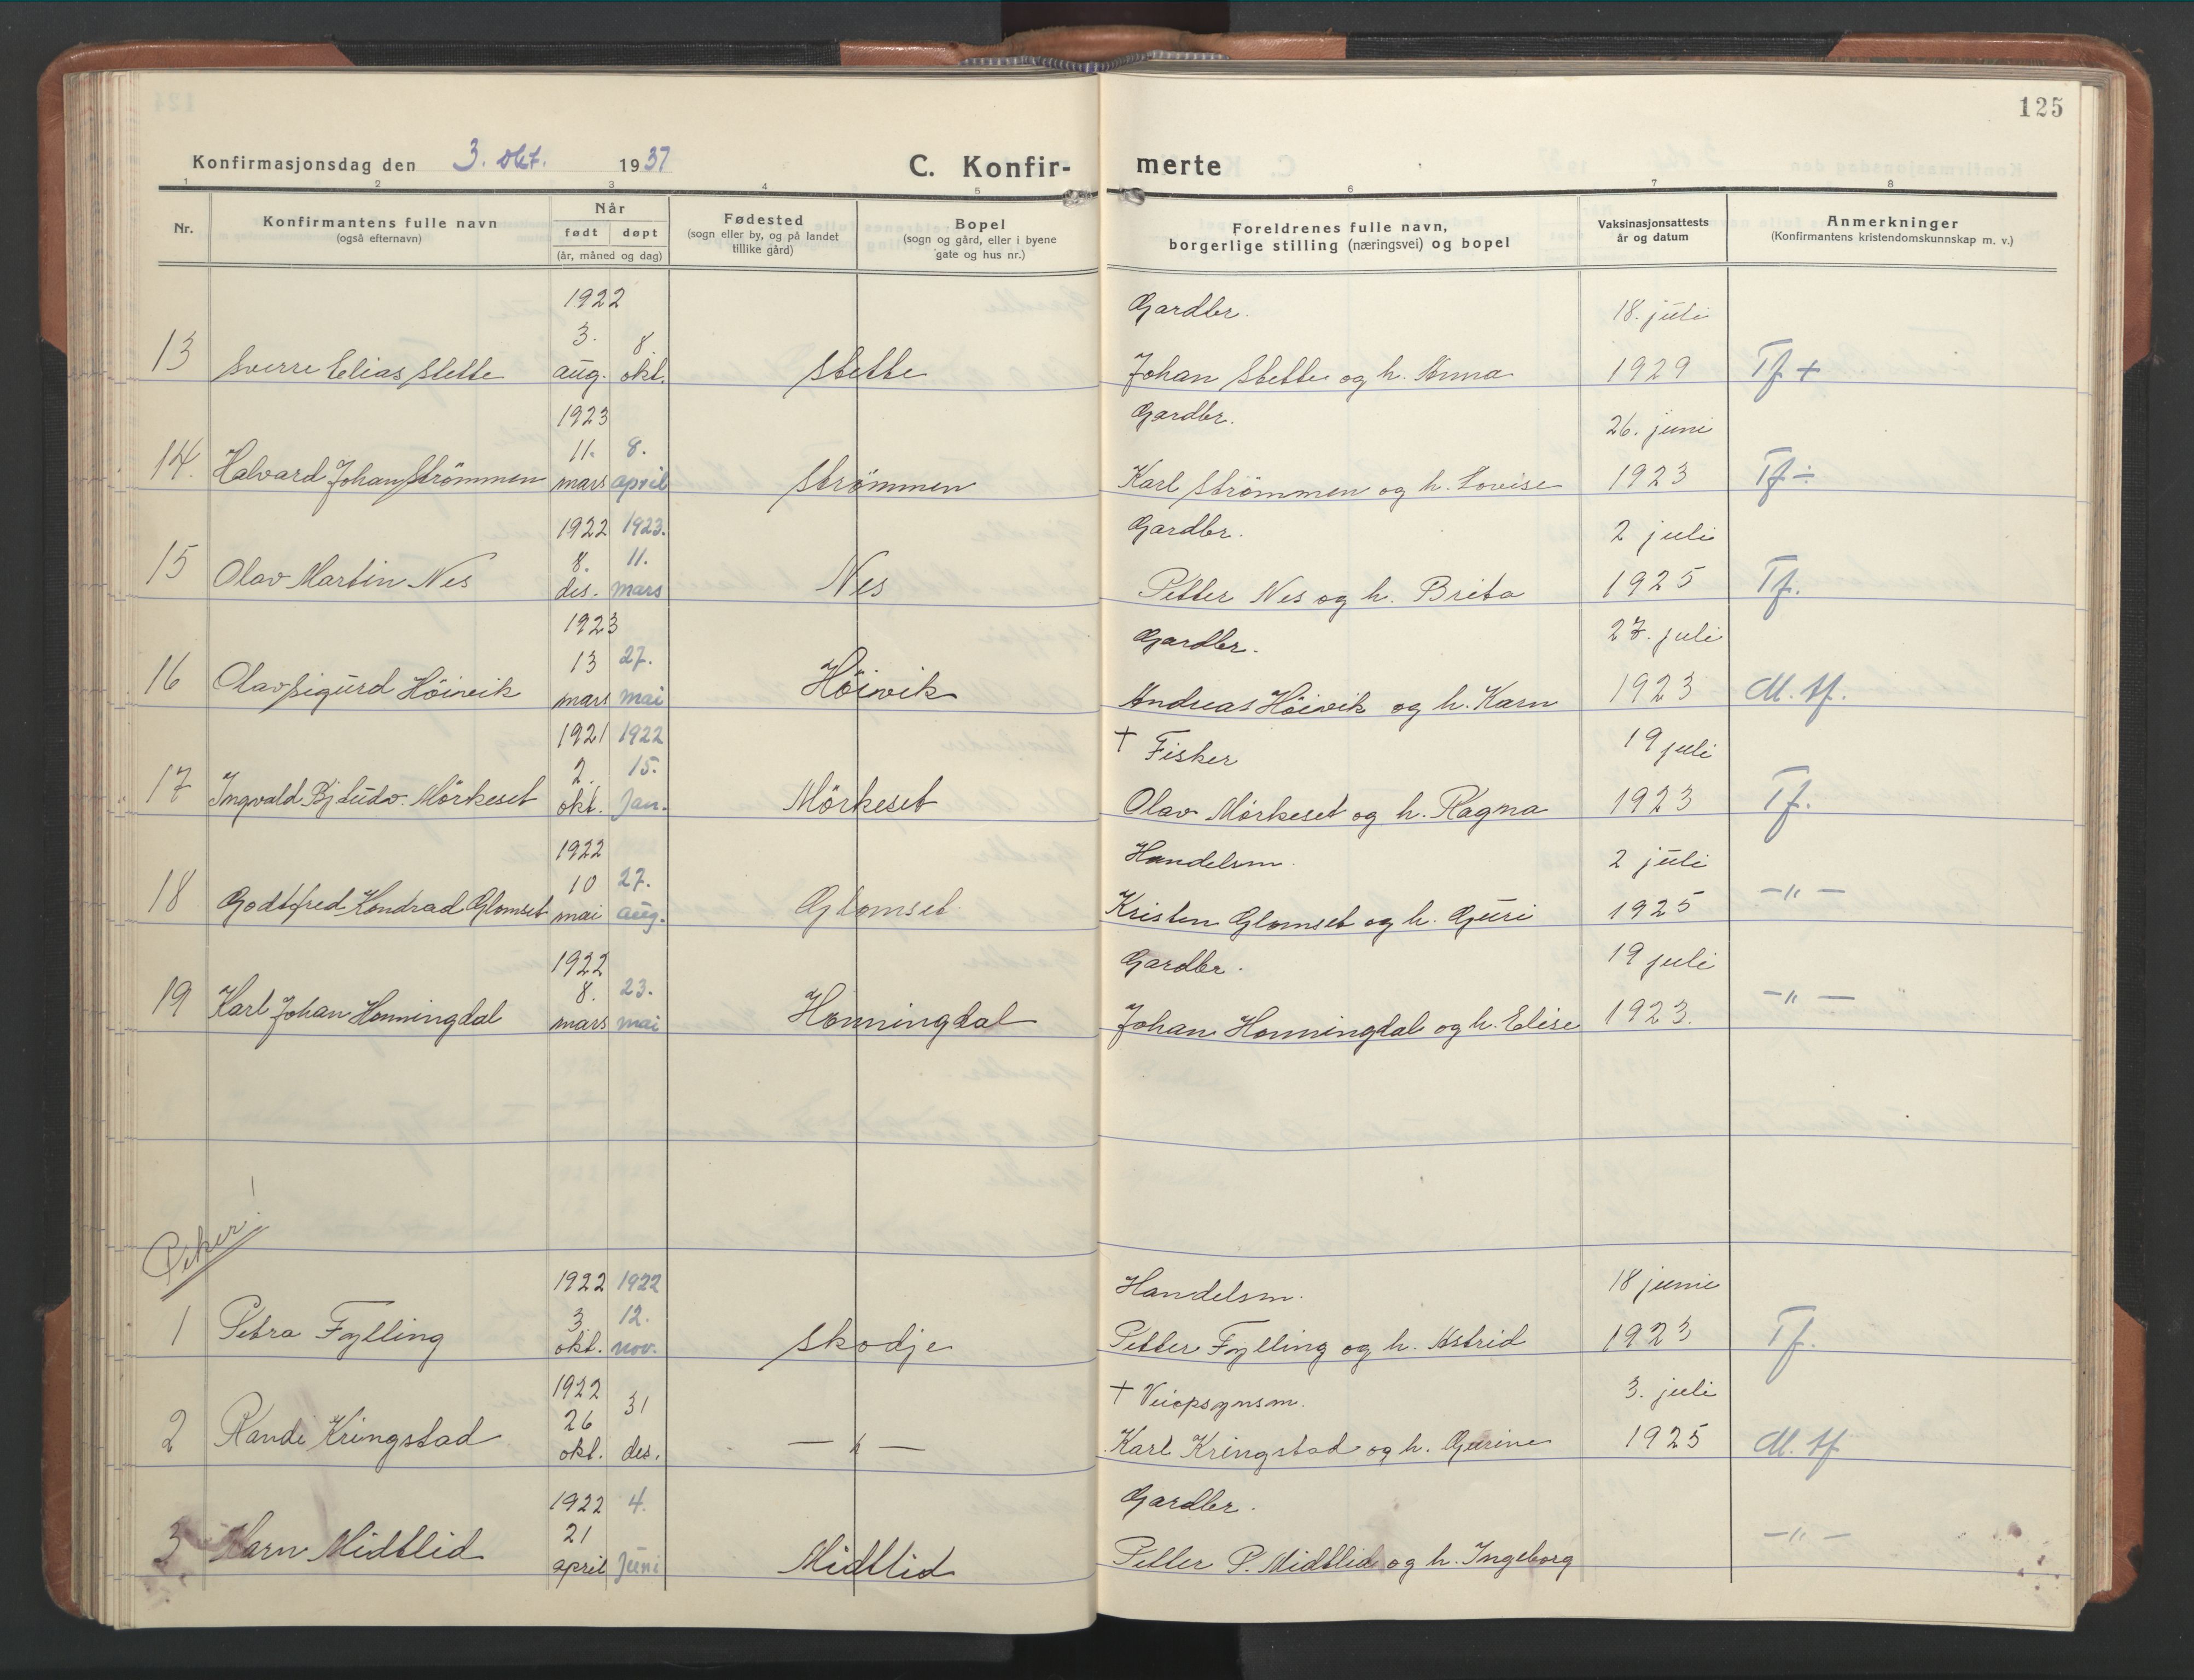 125
Konfirmasjonsdag den 3. okt. 1937
C. Konfir- merte
1 2 3 4 5 6 7 8
Nr.
Konfirmantens fulle navn
(også efternavn)
Når
født døpt
(år, måned og dag)
Fødested
(sogn eller by, og på landet
tillike gård)
Bopel
(sogn og gård, eller i byene
gate og hus nr.)
Foreldrenes fulle navn,
borgerlige stilling (næringsvei) og bopel
Vaksinasjonsattests
år og datum
Anmerkninger
(Konfirmantens kristendomskunnskap m. v.)
1922 Gardbr. 18. juli
3. 8.
13 Sverre Elias Stette aug. okt. Stette Johan Stette og h. Anna 1929 Tf +
1923 Gardbr. 26. juni
11. 8.
14. Halvard Johan Strömmen mars april Strömmen Karl Strömmen og h. Lovise 1923 Tf ÷
1922 1923. Gardbr. 2 juli
8. 11.
15 Olav Martin Nes des. mars Nes Petter Nes og h. Brita 1925 Tf.
1923 Gardbr. 27. juli
13 27.
16 Olav Sigurd Höivik mars mai Höivik Andreas Höivik og h. Karn 1923 M. tf.
1921 1922 † Fisker 19 juli
2. 15.
17 Ingvald Bj. Ludv. Mörkeset okt. Jan. Mörkeset Olav Mörkeset og h. Ragna 1923 Tf.
1922 Handelsm. 2 juli
10 27.
18 Godtfred Kondrad Glomset mai aug. Glomset Kristen Glomset og h. Guri 1925 — " —
1922 Gardbr. 19 juli
8. 23.
19 Karl Johan Honningdal mars mai Honningdal Johan Honningdal og h. Elise 1923. — " —
Piker!
1922 1922 Handelsm. 18 juni
3. 12.
1 Petra Fylling okt. nov. Skodje Petter Fylling og h. Astrid 1923 Tf.
1922 † Veiopsynsm. 3. juli
26 31
2 Randi Kringstad okt. des. — " — Karl Kringstad og h. Gurine 1925 M. tf
1922 4. Gardbr.
21
3 Karn Midtlid april Juni Midtlid Petter P. Midtlid og h. Ingeborg — " —